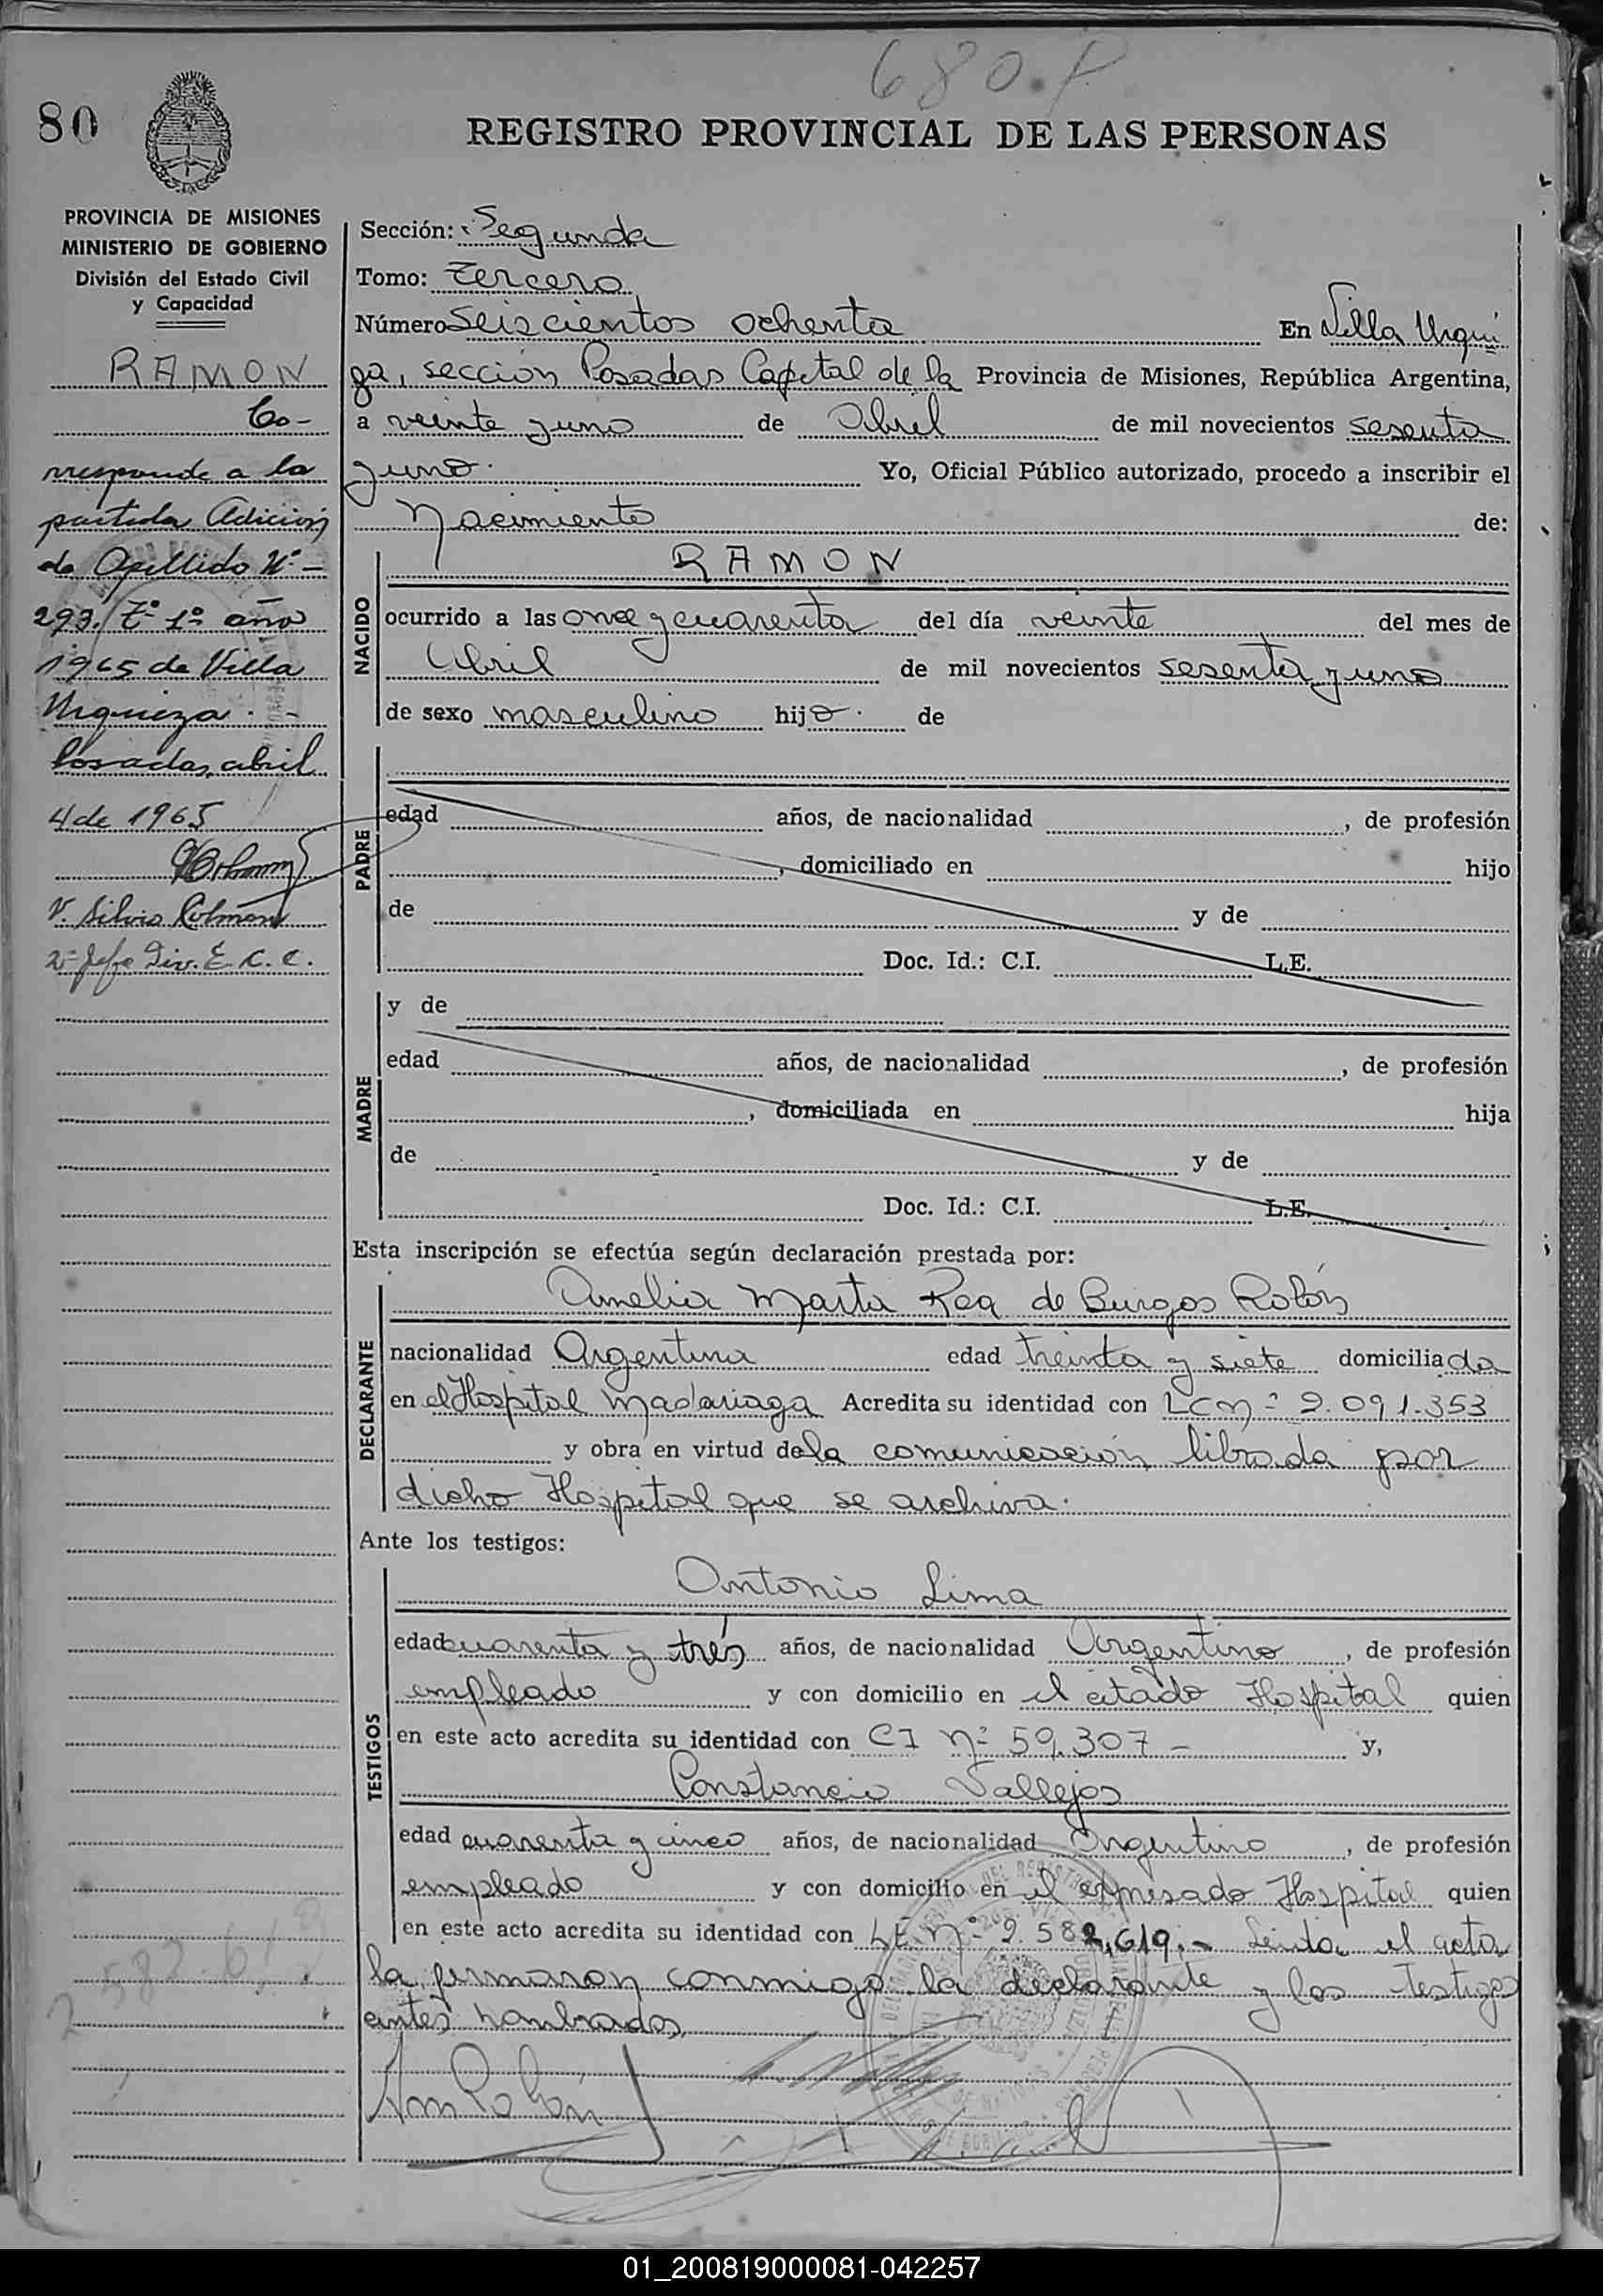 680.P
80
REGISTRO PROVINCIAL DE LAS PERSONAS
PROVINCIA DE MISIONES
MINISTERIO DE GOBIERNO
División del Estado Civil
y Capacidad
RAMON
Co-
rresponde a la
partida Adición
de Apellido Nº -
293. Tº 1º año
1965 de Villa
Urquiza. -
Posadas, abril
4 de 1965
V. Silvio Colman
2º Jefe Div. E. C. C.
Sección: Segunda
Tomo: tercero
Número Seiscientos ochenta En Villa Urqui
za, sección Posadas Capital de la Provincia de Misiones, República Argentina,
a veinte y uno de Abril de mil novecientos sesenta
y uno. Yo, Oficial Público autorizado, procedo a inscribir el
Nacimiento de:
NACIDO
RAMON
ocurrido a las once y cuarenta del día veinte del mes de
Abril de mil novecientos sesenta y uno
de sexo masculino hijo. de
PADRE
edad años, de nacionalidad , de profesión
, domiciliado en hijo
de y de
Doc. Id.: C.I. L.E.
MADRE
y de
edad años, de nacionalidad , de profesión
, domiciliada en hija
de y de
Doc. Id.: C.I. L.E.
Esta inscripción se efectúa según declaración prestada por:
DECLARANTE
Amelia Marta Rea de Burgos Rolón
nacionalidad Argentina edad treinta y siete domiciliada
en el Hospital Madariaga Acredita su identidad con LC Nº 2.091.353
y obra en virtud de la comunicación librada por
dicho Hospital que se archiva.
Ante los testigos:
TESTIGOS
Antonio Lima
edad cuarenta y trés años, de nacionalidad Argentino , de profesión
empleado y con domicilio en el citado Hospital quien
en este acto acredita su identidad con CI Nº 59.307 - y,
Constancio Vallejos
edad cuarenta y cinco años, de nacionalidad Argentino , de profesión
empleado y con domicilio en el expresado Hospital quien
en este acto acredita su identidad con LE Nº 2.582,619.- Leída el acta
la firmaron conmigo la declarante y los testigos
antes nombrados.
2 582.61
01_200819000081-042257